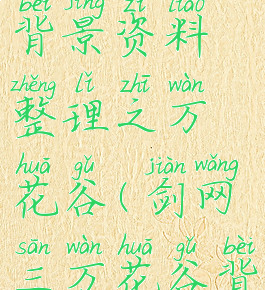 bèi jǐng zī liào
背景资料
zhěng lǐ zhī wàn
整理之万
huā gǔ jiàn wǎng
花谷(剑网
sān wàn huā gǔ bèi
三万花谷背